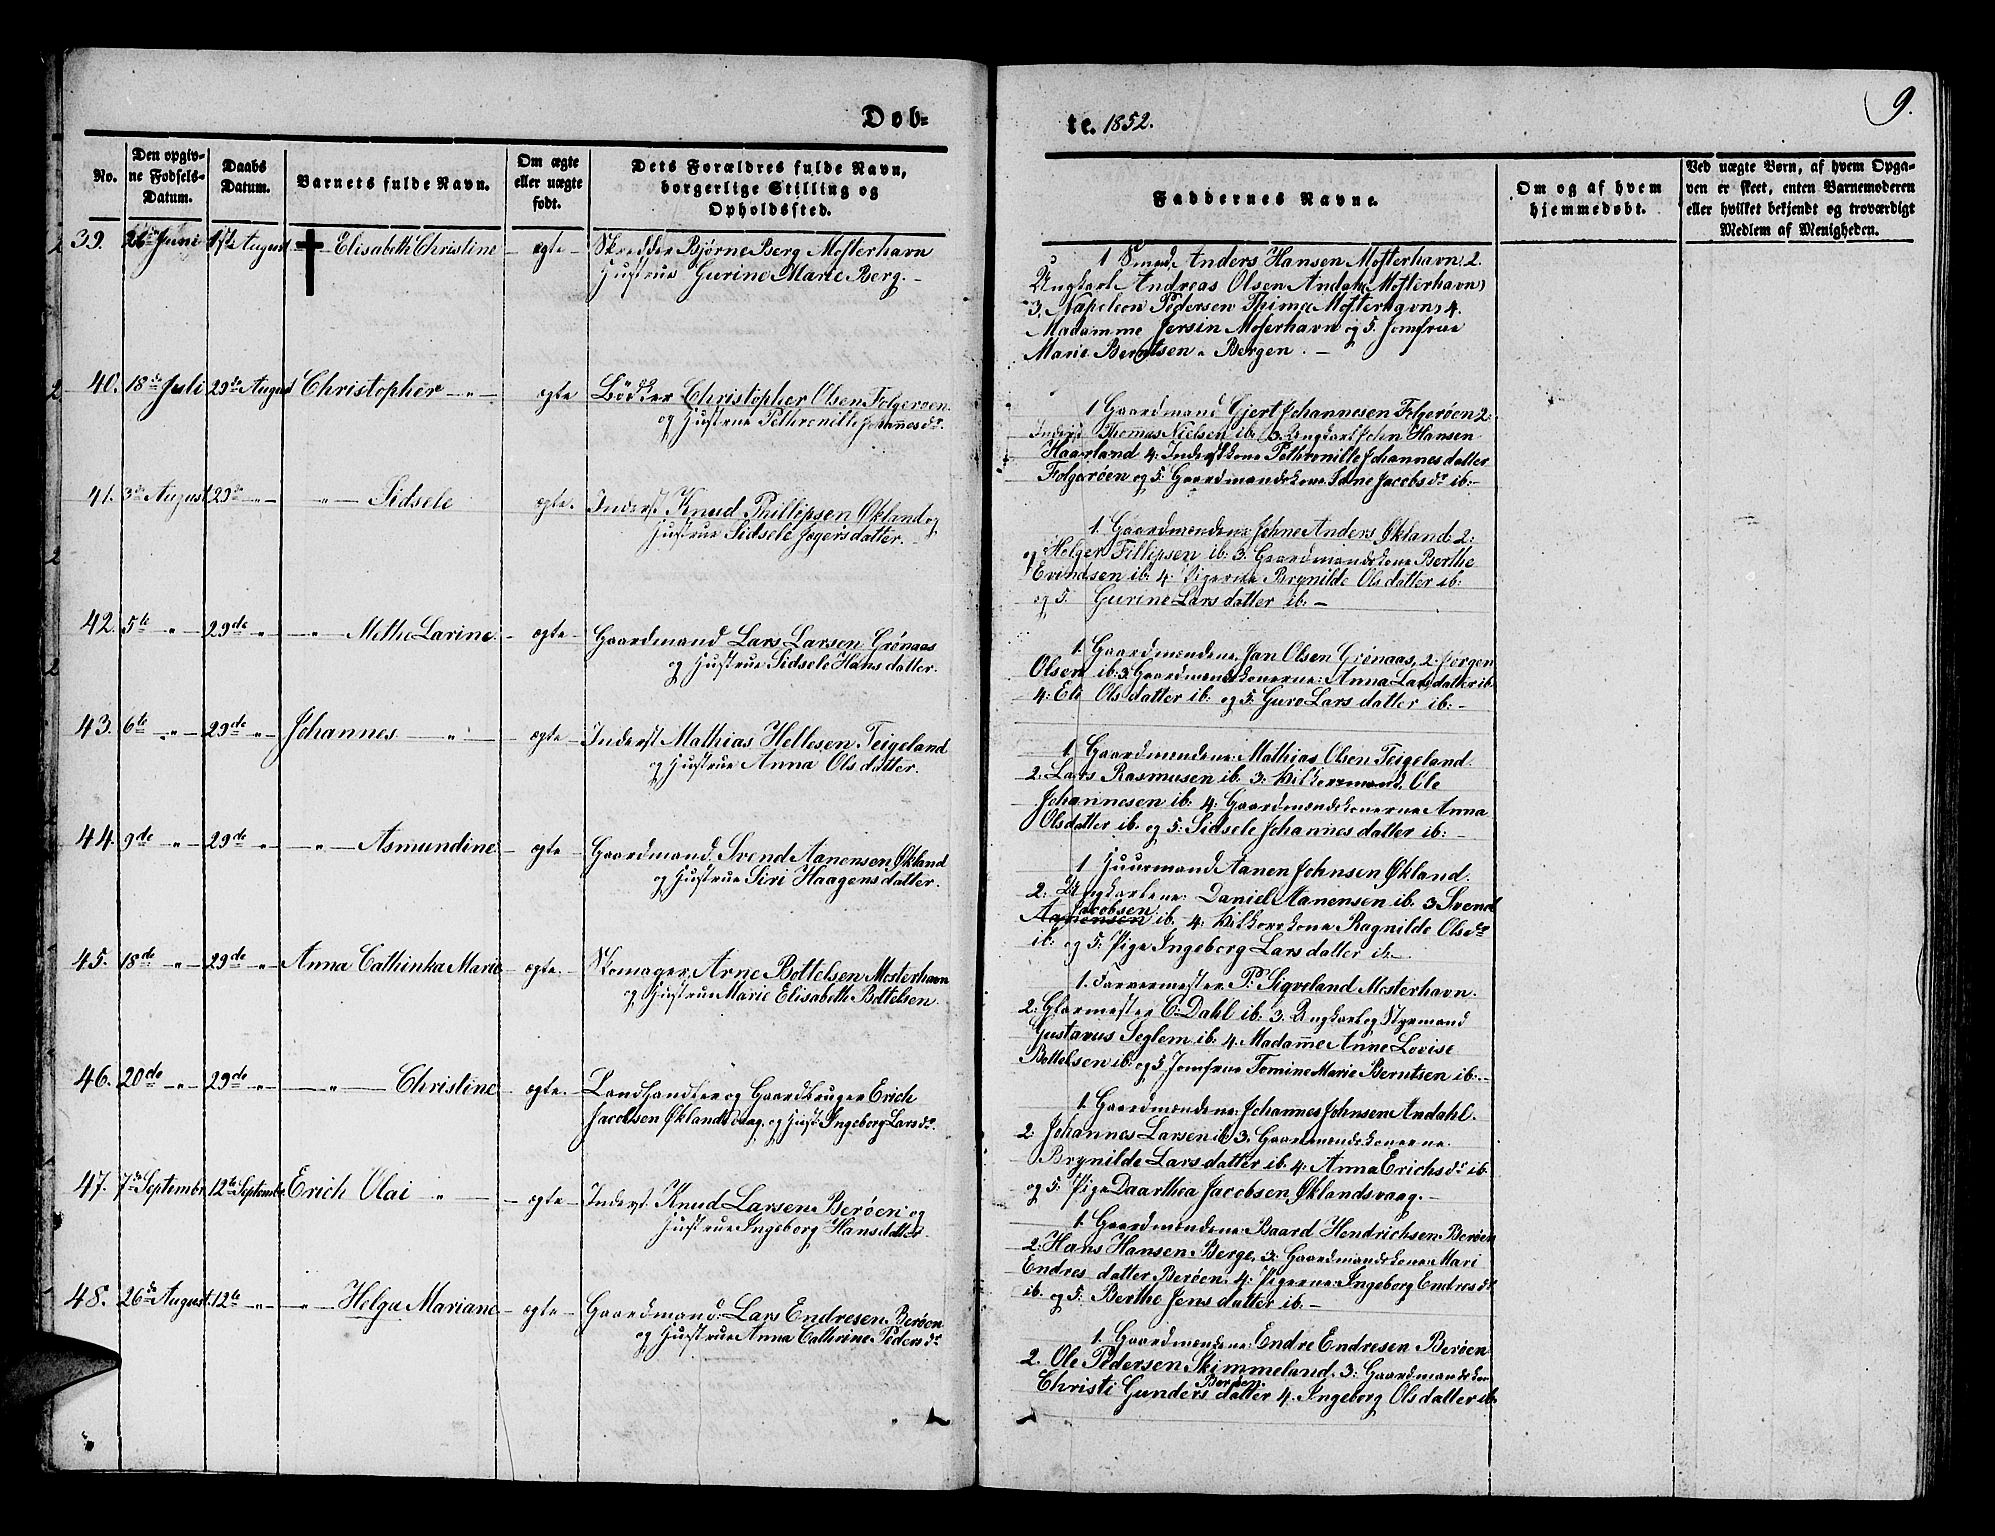 Døb-
No.
Den opgiv-
ne Fødsels-
Datum.
Daabs
Datum.
Barnets fulde Navn.
Om ægte
eller uægte
født.
Dets Forældres fulde Navn,
borgerlige Stilling og
Opholdssted.
39. 26de Juni 1ste August Elisabeth Christine ægte Skredder Bjørne Berg Mosterhavn
Hustrue Gurine Marie Berg.
40. 18de Juli 29de August Christopher ægte Bødker Christopher Olsen Folgerøen
og Hustrue Pethronille Johannesdr.
41. 3de August 29de Sidsele ægte Inderst Knud Phillipsen Økland og
Hustrue Sidsele Jegersdatter.
42. 5te " 29de " Methe Larine ægte Gaardmand Lars Larsen Grönaas
og Hustrue Sidsele Hansdatter.
43. 6te " 29de " Johannes ægte Inderst Mathias Hellesen Teigeland
og Hustrue Anna Olsdatter.
44. 9de " 29de " Asmundine ægte Gaardmand Svend Aanensen Økland
og Hustrue Siri Haagensdatter.
45. 18de " 29de " Anna Cathinka Marie ægte Skomager Arne Bottelsen Mosterhavn
og Hustrue Marie Elisabeth Bottelsen.
46. 20de " 29de " Christine ægte Landhandler og Gaardbruger Erich
Jacobsen Øklandsvaag og Hust: Ingeborg Larsdr.
47. 7de September 12te September Erich Olai ægte Inderst Knud Larsen Berøen og
Hustrue Ingeborg Hansdatter.
48. 26de August 12te " Helga Mariane ægte Gaardmand Lars Endresen Berøen
og Hustrue Anna Cathrine Pedersdr.
te. 1852.
9.
Faddernes Navne.
Om og af hvem
hjemmedøbt.
Ved uægte Børn, af hvem Opga-
ven er skeet, enten Barnemoderen
eller hvilket bekjendt og troværdigt
Medlem af Menigheden.
1 Smed Anders Hansen Mosterhavn 2.
Ungkarl Andreas Olsen Andahl Mosterhavn
3. Napoleon Pedersen Thime Mosterhavn, 4.
Madamme Jersin Moserhavn og 5. Jomfrue
Marie Berntsen Bergen.
1 Gaardmand Gjert Johannesen Folgerøen 2:
Inderst Thomas Nielsen ib: 3. Ungkarl John Hansen
Haarland 4: Inderstkone Pethronille Johannesdatter
Folgerøen og 5: Gaardmandskone Jacobsdr ib:
1. Gaardmendene Johne Anders Økland 2:
og Helger Fillipsen ib: 3. Gaardmandskone Berthe
Evindsen ib: 4: Pigerne Brynilde Olsdatter ib:
og 5. Gurine Larsdatter ib:
1. Gaardmendene Jan Olsen Grönaas, 2: Jørgen
Olsen ib: 3 Gaardmandskonerne: Anna Larsdatter ib:
4: Eli Olsdatter ib: og 5: Guro Larsdatter ib:
1. Gaardmendene: Mathias Olsen Teigeland
2. Lars Rasmusen ib: 3: Kilkormand Ole
Johannesen ib: 4: Gaardmandskonerne Anna
Olsdatter ib: og 5: Sidsele Johannesdatter ib:
1 Huusmand Aanen Johnsen Økland.
2: Ungkarlene: Daniel Aanensen ib: 3 Svend
Jacobsen
Aanensen ib: 4: Kilkorskone Ragnilde Olsdr
ib: og 5: Pige Ingeborg Larsdatter ib:
1. Farvermester P: Siqveland Mosterhavn.
2: Glarmester C: Dahl ib: 3. Ungkarl og Styrmand
Gustavus Seglem ib: 4. Madame Anne Lovise
Bottelsen ib: og 5. Jomfrue Tomine Marie Berntsen ib:
1. Gaardmendene: Johannes Johnsen Andahl.
2: Johannes Larsen ib: 3. Gaardmandskonerne
Brynilde Larsdatter ib: 4: Anna Erichsdr ib:
og 5: Pige Daarthea Jacobsen, Øklandsvaag.
1. Gaardmendene: Baard Hendrichsen Berøen
2: Hans Hansen Berge, 3: Gaardmandskone Mari
Endresdatter Berøen, 4: Pigerne: Ingeborg Endresdr
ib. og 5: Berthe Jensdatter ib:
1. Gaardmendene: Endre Endresen Berøen
2. Ole Pedersen Skimmeland. 3: Gaardmandskone
Berøen
Christi Gundersdatter 4. Ingeborg Olsdatter ib: